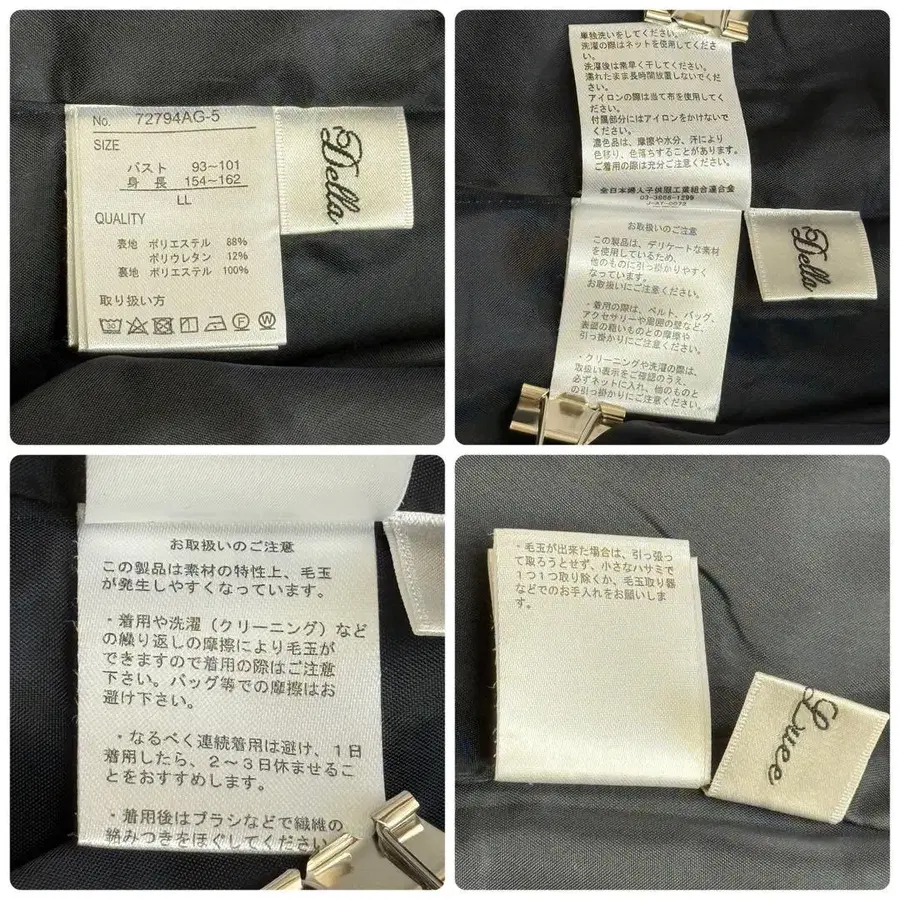 No. 72794AG-5
SIZE
バスト 93～101
身 長 154～162
LL
QUALITY
表地 ポリエステル 88%
ポリウレタン 12%
裏地 ポリエステル 100%
取り扱い方
30
F
W
Della
単独洗いをしてください。
洗濯の際はネットを使用してくだ
さい。
洗濯後は素早く干してください。
濡れたまま長時間放置しないでくだ
さい。
アイロンの際は当て布を使用してく
ださい。
付属部分にはアイロンをかけないで
ください。
濃色品は、摩擦や水分、汗により
色移り、色落ちすることがあります。
ご着用の際は充分ご注意ください。
全日本婦人子供服工業組合連合会
お取扱いのご注意
この製品は、デリケートな素材
を使用しているため、
他のものに引っ掛かりやすく
なっています。
お取扱いにご注意ください。
・着用の際は、ベルト、バッグ、
アクセサリーや周囲の壁など、
表面の粗いものとの摩擦や
引っ掛かりにご注意ください。
・クリーニングや洗濯の際は、
取扱い表示をご確認のうえ、
必ずネットに入れ、他のものと
の引っ掛かりにご注意ください。
Della
お取扱いのご注意
この製品は素材の特性上、毛玉
が発生しやすくなっています。
・着用や洗濯（クリーニング）など
の繰り返しの摩擦により毛玉が
できますので着用の際はご注意
下さい。バッグ等での摩擦はお
避け下さい。
・なるべく連続着用は避け、1日
着用したら、2～3日休ませるこ
とをおすすめします。
・着用後はブラシなどで繊維の
絡みつきをほぐしてください
・毛玉が出来た場合は、引っ張っ
て取ろうとせず、小さなハサミで
1つ1つ取り除くか、毛玉取り器
などでのお手入れをお願いしま
す。
Luce